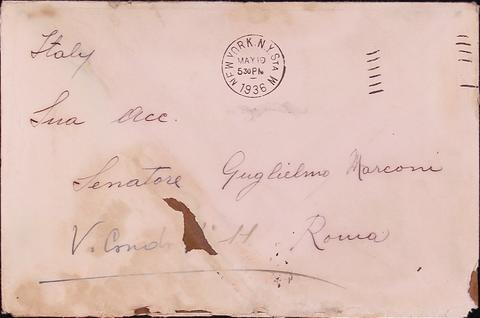 Italy
NEW YORK, N.Y. STA. W
MAY 10
5 30 PM
1936
Sua Acc.
Senatore Guglielmo Marconi
V. Cond 11 Roma